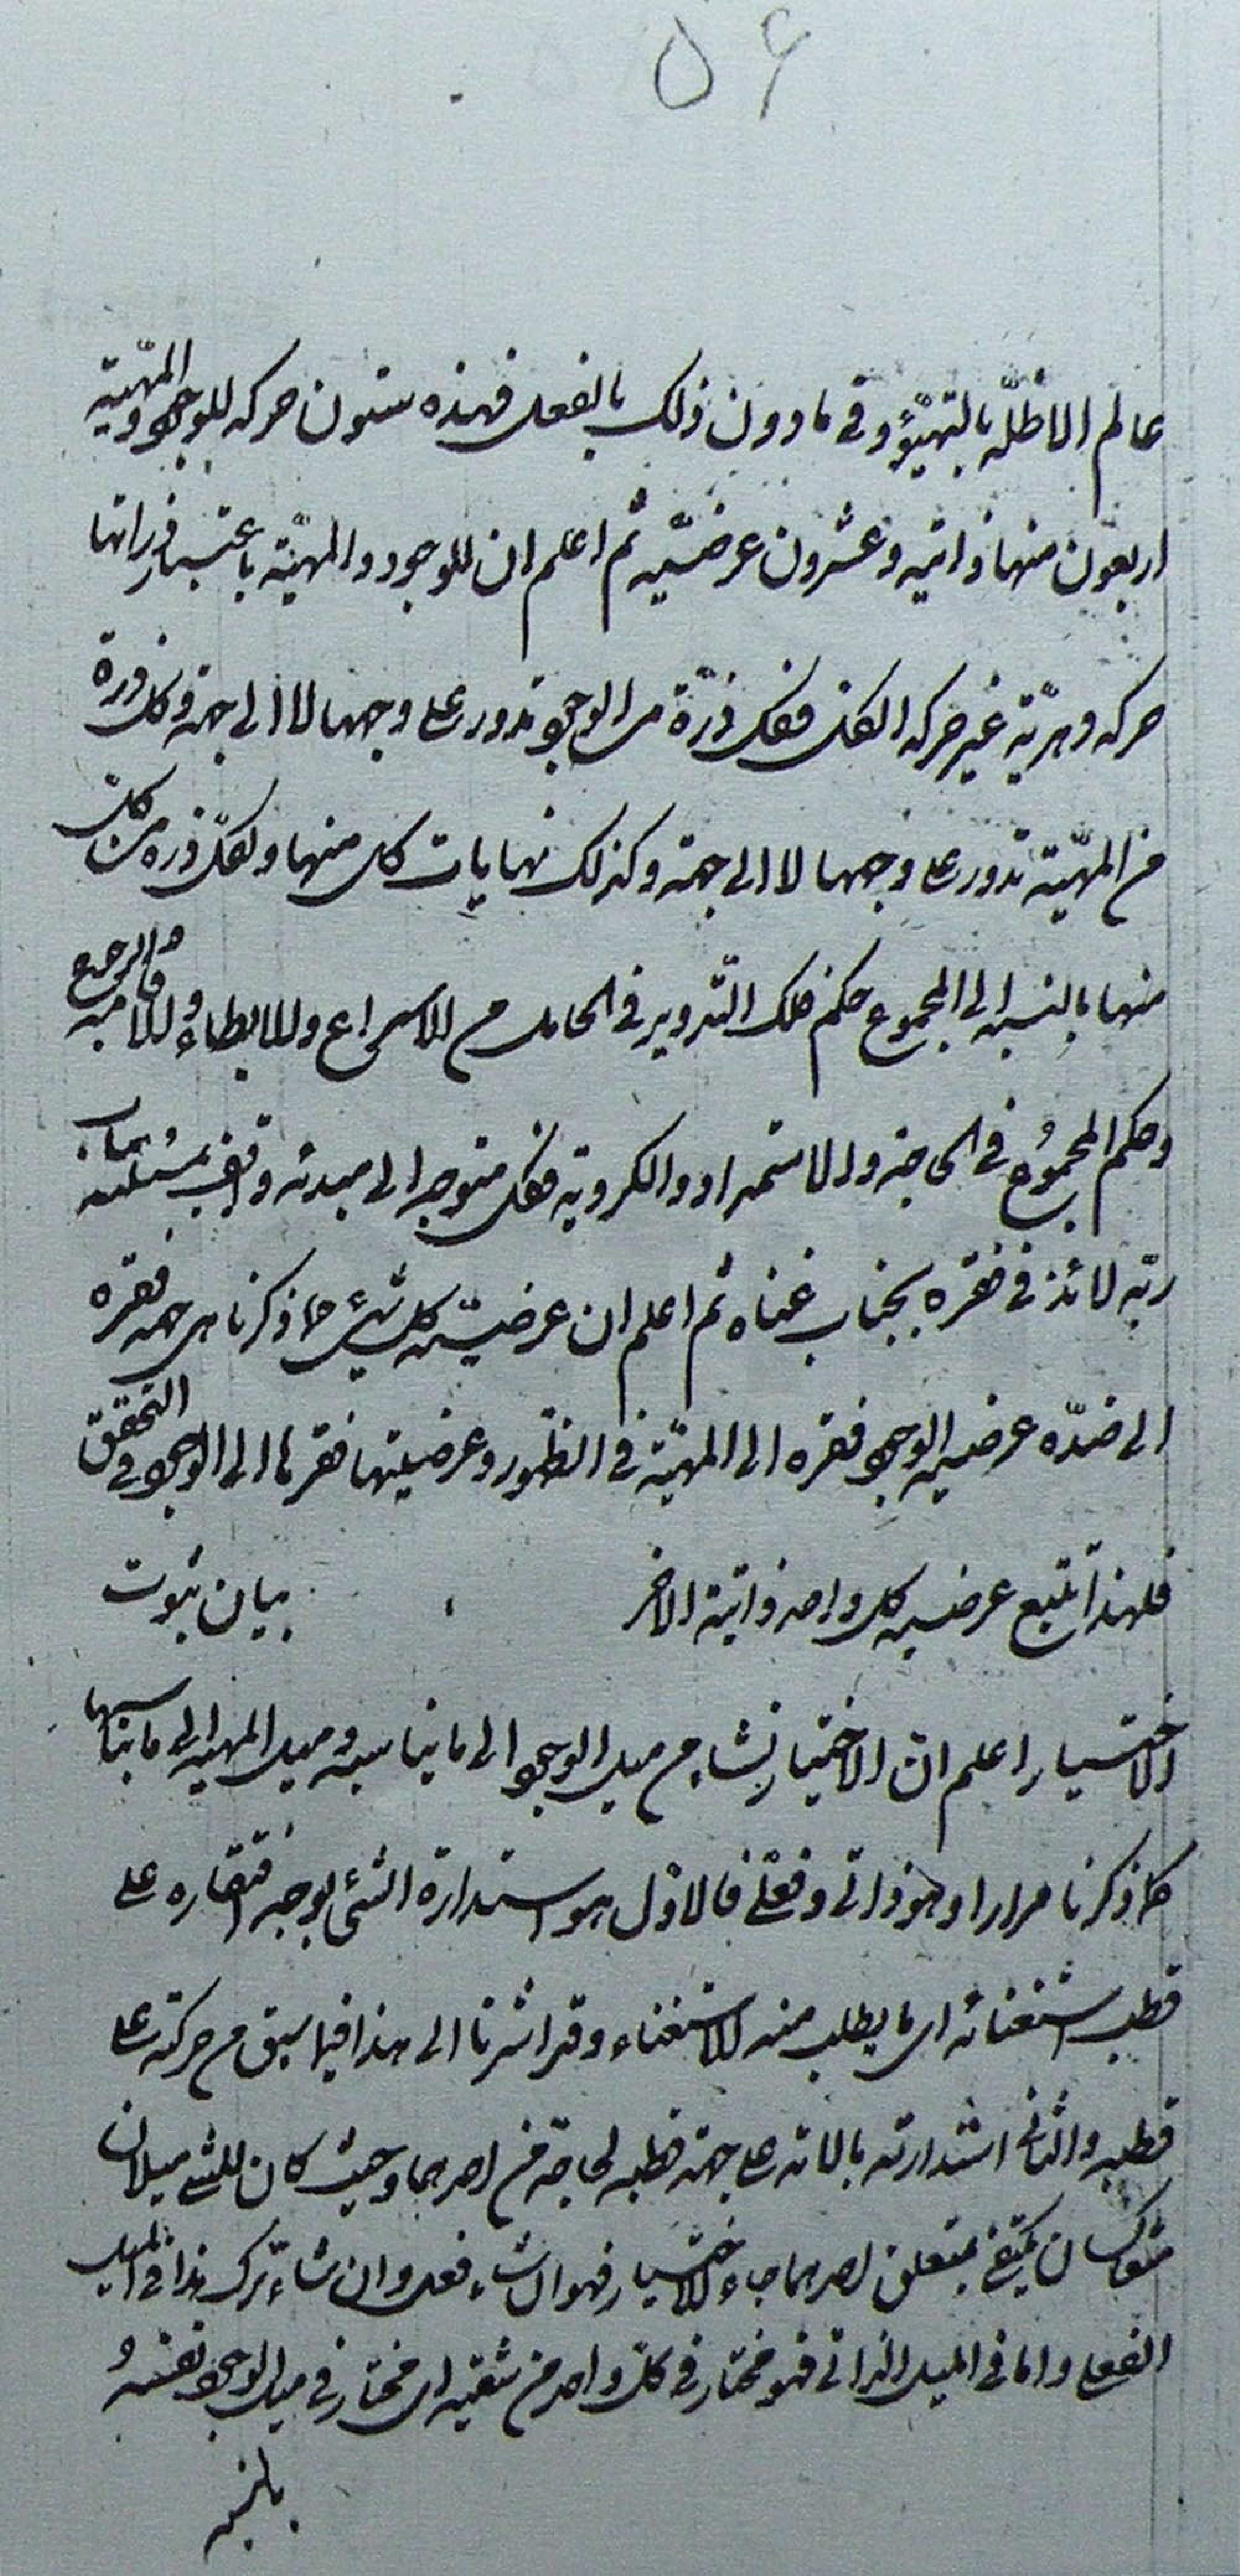 ٥٦
عالم الاظلّه بالتهيّؤ و فى ما دون ذلك بالفعل فهذه ستون حركه للوجود والمهيّة
اربعون منها ذاتيه وعشرون عرضيّه ثم اعلم ان للوجود والمهيّة باعتبار ذراتها
حركه وهريّة غير حركه الكل فكل ذرّة من الوجود تدور على وجهها لا الى جهة وكل ذرة
من المهيّة تدور على وجهها لا الى جهة وكذلك نهايات كل منها ولكل ذرة من كل
منها بالنسبه الى المجموع حكم فلك التدوير فى الحامل من الاسراع والابطاء والاقامه والرجوع
وحكم المجموع فى الحاجة والاستمداد والكروية فكل متوجه الى مبدئه واقف بمسئلته بباب
ربّه لائذ فى فقره بجناب غناه ثم اعلم ان عرضيّه كل شىء مما ذكرنا هى جهة فقره
الى ضدّه عرضيه الوجود فقره الى المهيّة فى الظهور وعرضيتها فقرها الى الوجود فى التحقق
فلهذا تتبع عرضيه كل واحد ذاتية الاخر بيان ثبوت
الاختيار اعلم ان الاختيار نشا من ميل الوجود الى ما يناسبه وميل المهيه الى ما يناسبها
كما ذكرنا مرارا وهو ذاتى وفعلى فالاوّل هو استدارة الشىء بوجه افتقاره على
قطب استغنائه اى ما يطلب منه الاستغناء وقد اشرنا الى هذا فيما سبق من حركته على
قطبه والثانى استدارته بالاته على جهة قطبه لحاجة من احدهما وحيث كان للشىء ميلان
متعاكسان يكتفى بمتعلق احدهما جاء الاختيار فهو ان شاء فعل وان شاء ترك هذا فى الميل
الفعلى واما فى الميل الذاتى فهو مختار فى كل واحد من شقيه اى مختار فى ميل الوجود نفسهُ
بالنسبه